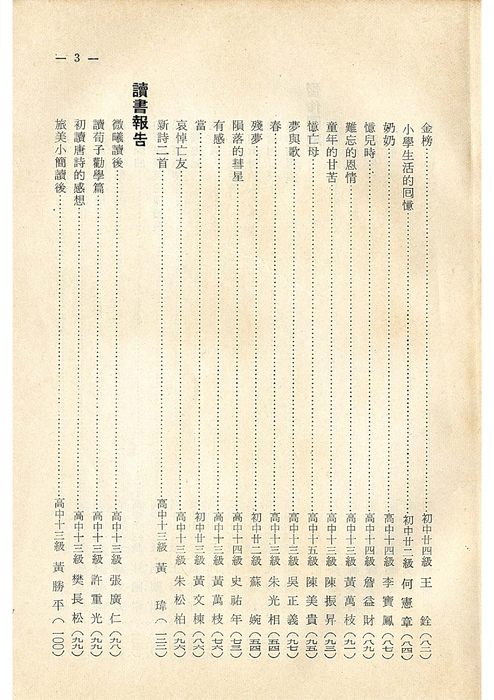 — 3 —
金榜……初中廿四級 王　銓(八二)
小學生活的回憶……初中廿二級 何憲章(八四)
奶奶……高中十四級 李寶鳳(八七)
憶兒時……高中十四級 詹益財(八九)
難忘的恩情……高中十三級 黃萬枝(九一)
童年的甘苦……高中十三級 陳振昇(九三)
憶亡母……高中十五級 陳美貴(九五)
夢與歌……高中十三級 吳正義(七九)
春……高中十三級 朱光相(五四)
殘夢……初中廿二級 蘇　婉(五四)
隕落的彗星……高中十四級 史祐年(七三)
有感……高中十三級 黃萬枝(七六)
當……初中廿三級 黃文棟(八六)
哀悼亡友……高中十三級 朱松柏(九六)
新詩二首……高中十三級 黃　瑋(一三三)
讀書報告
微曦讀後……高中十三級 張廣仁(九八)
讀荀子勸學篇……高中十三級 許重光(九九)
初讀唐詩的感想……高中十三級 樊長松(九九)
旅美小簡讀後……高中十三級 黃勝平(一〇〇)